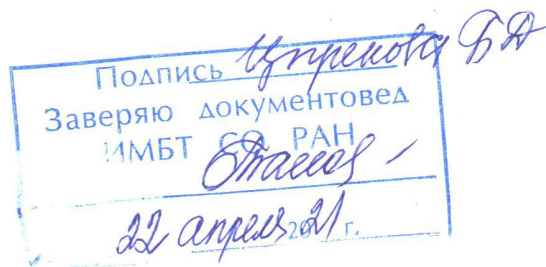 Подпись Цыренова Б Д
Заверяю документовед
ИМБТ СО РАН
22 апреля 2021 г.